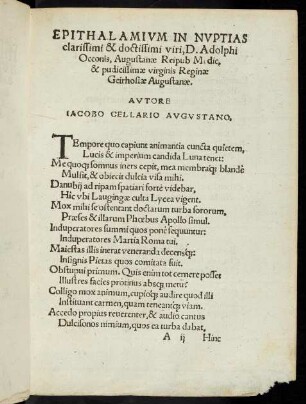 EPITHALAMIVM IN NVPTIAS
clarissimi & doctissimi viri, D. Adolphi
Occonis, Augustanæ Reipub Medic,
& pudicissimæ virginis Reginæ
Geirhosiæ Augustanæ.
AVTORE
IACOBO CELLARIO AVGVSTANO.
TEmpore quo capiunt animantia cuncta quietem,
Lucis & imperium candida Luna tenet:
Me quoq; somnus iners cepit, mea membraq; blandè
Mulsit, & obiecit dulcia visa mihi.
Danubij ad ripam spatiari fortè videbar,
Hic vbi Laugingæ culta Lycea vigent.
Mox mihi se ostentant doctarum turba sororum,
Præses & illarum Phœbus Apollo simul.
Induperatores summi quos ponè sequuntur:
Induperatores Martia Roma tui.
Maiestas illis inerat veneranda decensq;
Insignis Pietas quos comitata fuit.
Obstupui primum. Quis enim tot cernere posset
Illustres facies protinus absq; metu?
Colligo mox animum, cupioq; audire quod illi
Instituant carmen, quam teneantq; viam.
Accedo propius reuerenter, & audio cantus
Dulcisonos nimium, quos ea turba dabat,
A ij Hinc